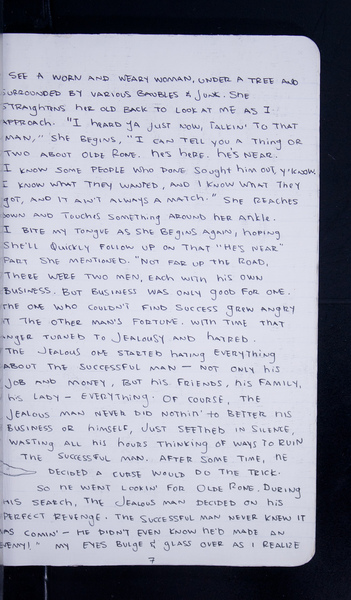 SEE A WORN AND WEARY WOMAN, UNDER A TREE AND
SURROUNDED BY VARIOUS BAUBLES & JUNK. SHE
STRAIGHTENS HER OLD BACK TO LOOK AT ME AS I
APPROACH. "I HEARD YA JUST NOW, TALKIN' TO THAT
MAN," SHE BEGINS, "I CAN TELL YOU A THING OR
TWO ABOUT OLDE RONE. HE'S HERE. HE'S NEAR.
I KNOW SOME PEOPLE WHO DONE SOUGHT HIM OUT, Y'KNOW.
I KNOW WHAT THEY WANTED, AND I KNOW WHAT THEY
GOT, AND IT AIN'T ALWAYS A MATCH." SHE REACHES
DOWN AND TOUCHES SOMETHING AROUND HER ANKLE.
I BITE MY TONGUE AS SHE BEGINS AGAIN, HOPING
SHE'LL QUICKLY FOLLOW UP ON THAT "HE'S NEAR"
PART SHE MENTIONED. "NOT FAR UP THE ROAD,
THERE WERE TWO MEN, EACH WITH HIS OWN
BUSINESS. BUT BUSINESS WAS ONLY GOOD FOR ONE.
THE ONE WHO COULDN'T FIND SUCCESS GREW ANGRY
AT THE OTHER MAN'S FORTUNE. WITH TIME THAT
ANGER TURNED TO JEALOUSY AND HATRED.
THE JEALOUS ONE STARTED HATING EVERYTHING
ABOUT THE SUCCESSFUL MAN — NOT ONLY HIS
JOB AND MONEY, BUT HIS FRIENDS, HIS FAMILY,
HIS LADY - EVERYTHING. OF COURSE, THE
JEALOUS MAN NEVER DID NOTHIN' TO BETTER HIS
BUSINESS OR HIMSELF, JUST SEETHED IN SILENCE,
WASTING ALL HIS HOURS THINKING OF WAYS TO RUIN
THE SUCCESSFUL MAN. AFTER SOME TIME, HE
DECIDED A CURSE WOULD DO THE TRICK.
SO HE WENT LOOKIN' FOR OLDE RONE. DURING
HIS SEARCH, THE JEALOUS MAN DECIDED ON HIS
PERFECT REVENGE. THE SUCCESSFUL MAN NEVER KNEW IT
WAS COMIN' — HE DIDN'T EVEN KNOW HE'D MADE AN
ENEMY!" MY EYES BULGE & GLASS OVER AS I REALIZE
7